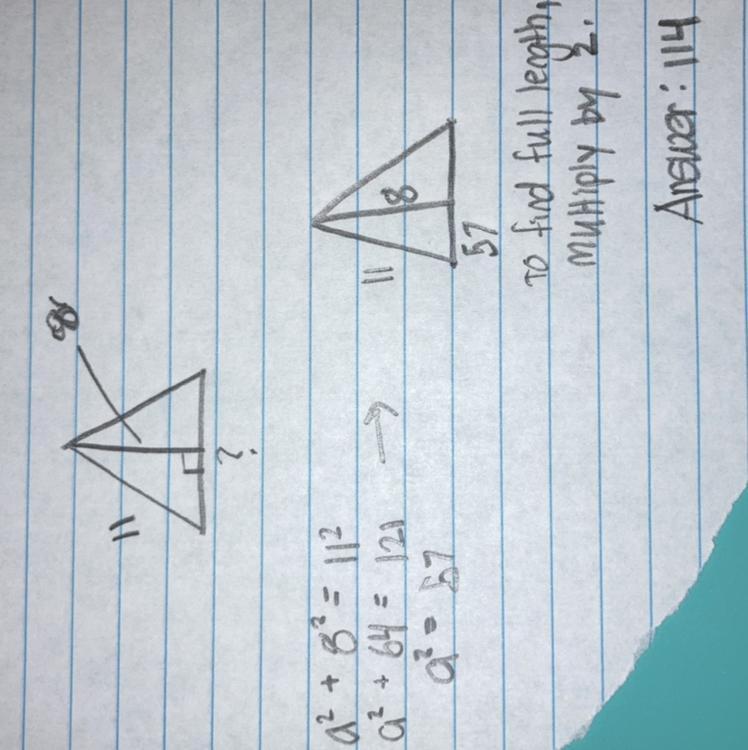 8
11
?
a² + 8² = 11²
a² + 64 = 121 →
a² = 57
11
8
57
To find full length,
multiply by 2.
Answer: 114